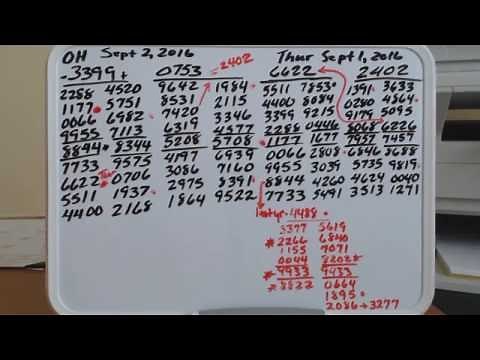 OH Sept 2, 2016 Thur Sept 1, 2016
-3399+ 0753 =2402 6622 2402
2288 4520 9642 1984 5511 7853 1391 3633
1177 5751 8531 2115 4400 8084 0280 4864
0066 6982 7420 3346 3399 9215 9179 5095
9955 7113 6319 4577 2288 0446 8068 6226
8844 8344 5208 5708 1177 1677 7957 7457
7733 9575 4197 6939 0066 2808 6846 8688
6622 Thur 0706 3086 7160 9955 3039 5735 9819
5511 1937 2975 8391 8844 4260 4624 0040
4400 2168 1864 9522 7733 5491 3513 1271
4488
3377 5619
*2266 6840
1155 7071
0044 8202
*9933 9433
*8822 0664
1895
2086→3277